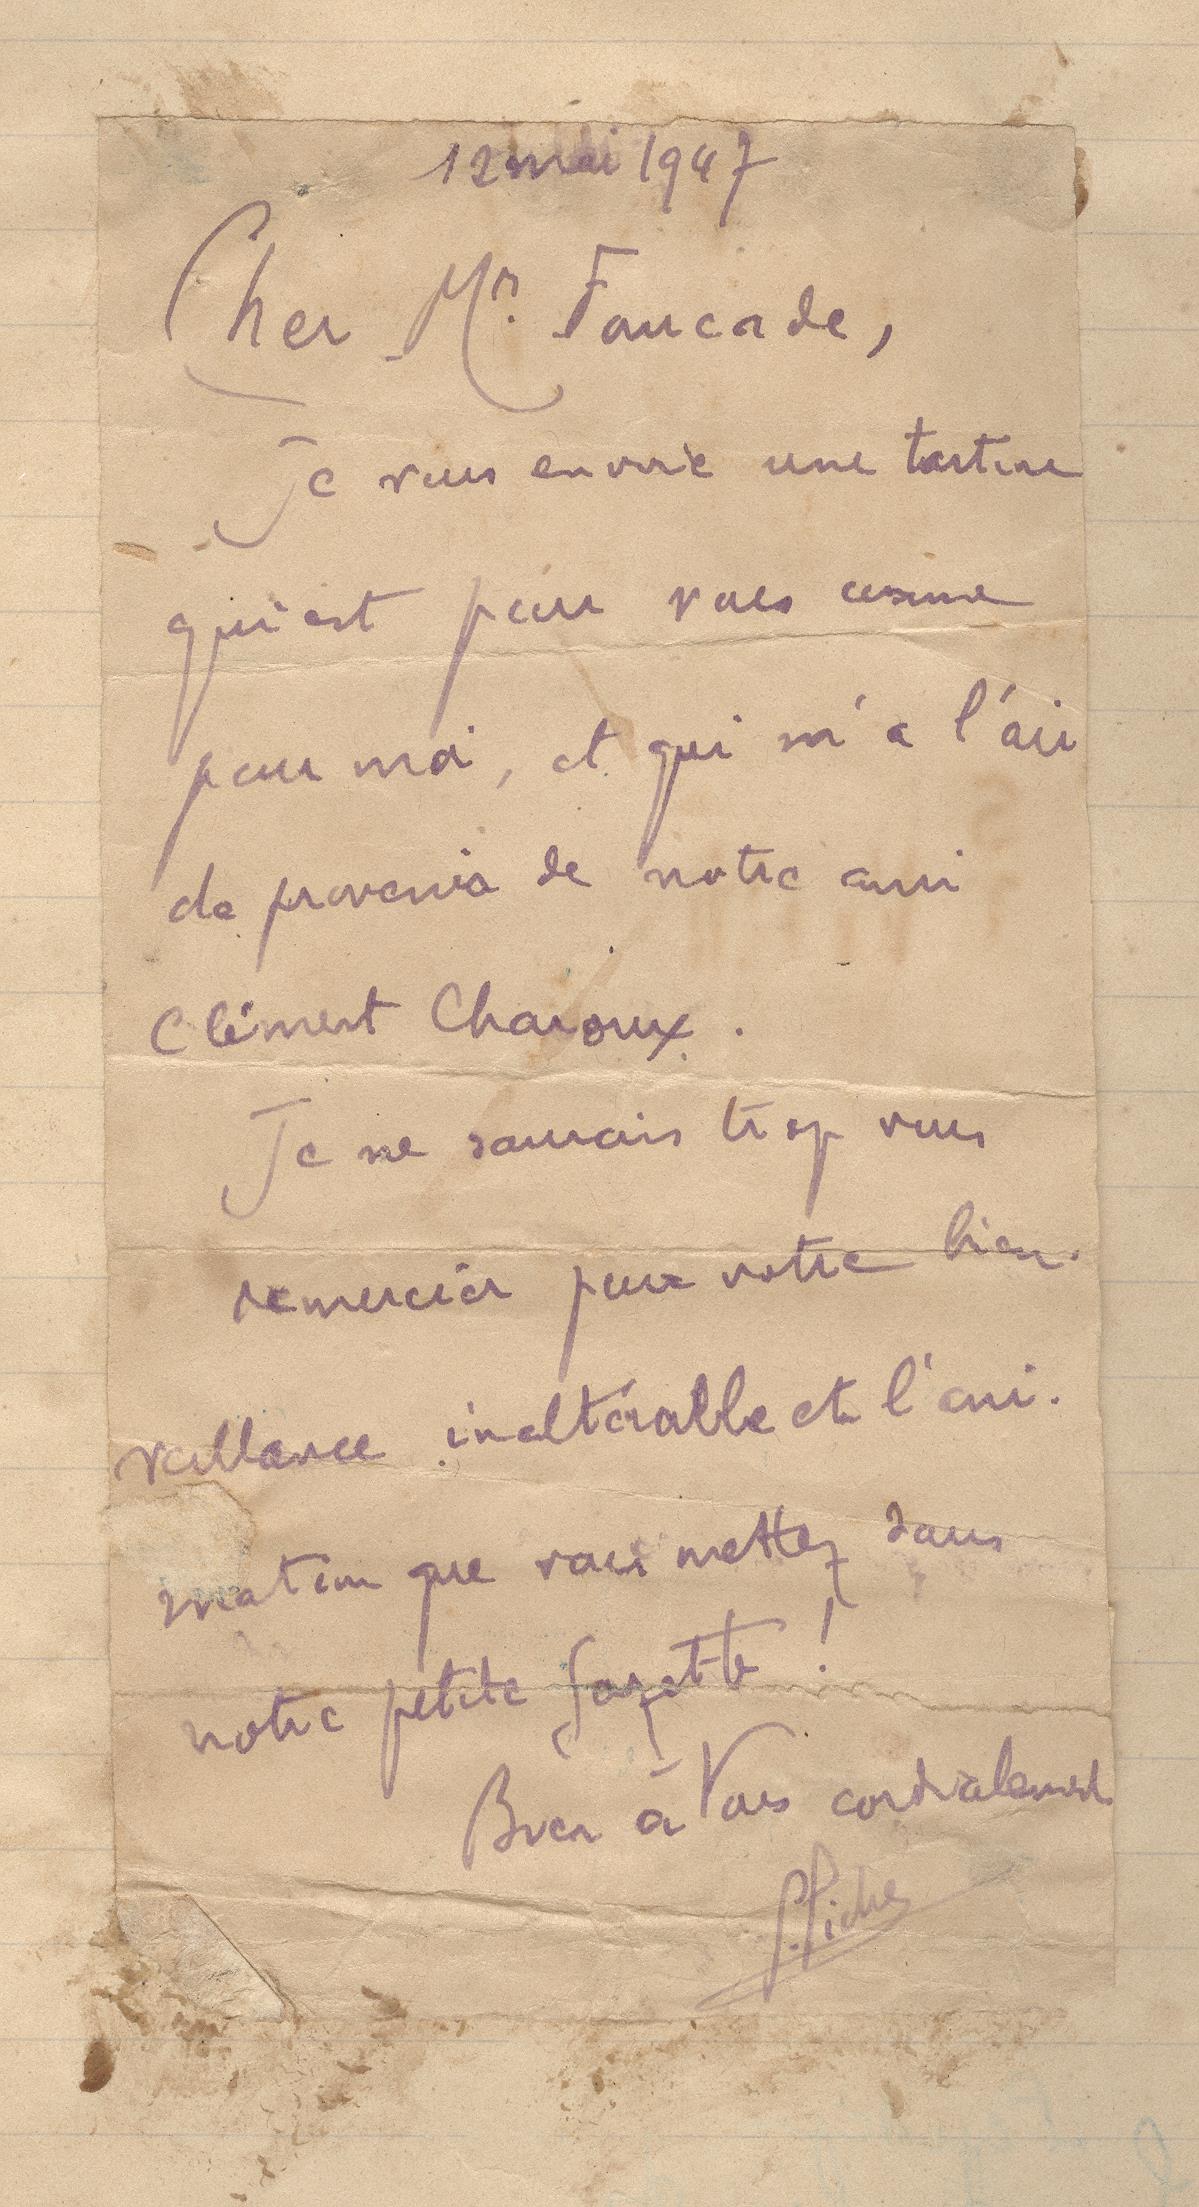 12 mai 1947
Cher Mr. Foucade,
Je vous envoie une tartine
qui est pour vous comme
pour moi, et qui m'a l'air
de provenir de notre ami
Clément Charoux.
Je ne saurais trop vous
remercier pour votre bien-
veillance inaltérable et l'ani-
mation que vous mettez dans
notre petite gazette !
Bien à Vous cordialement